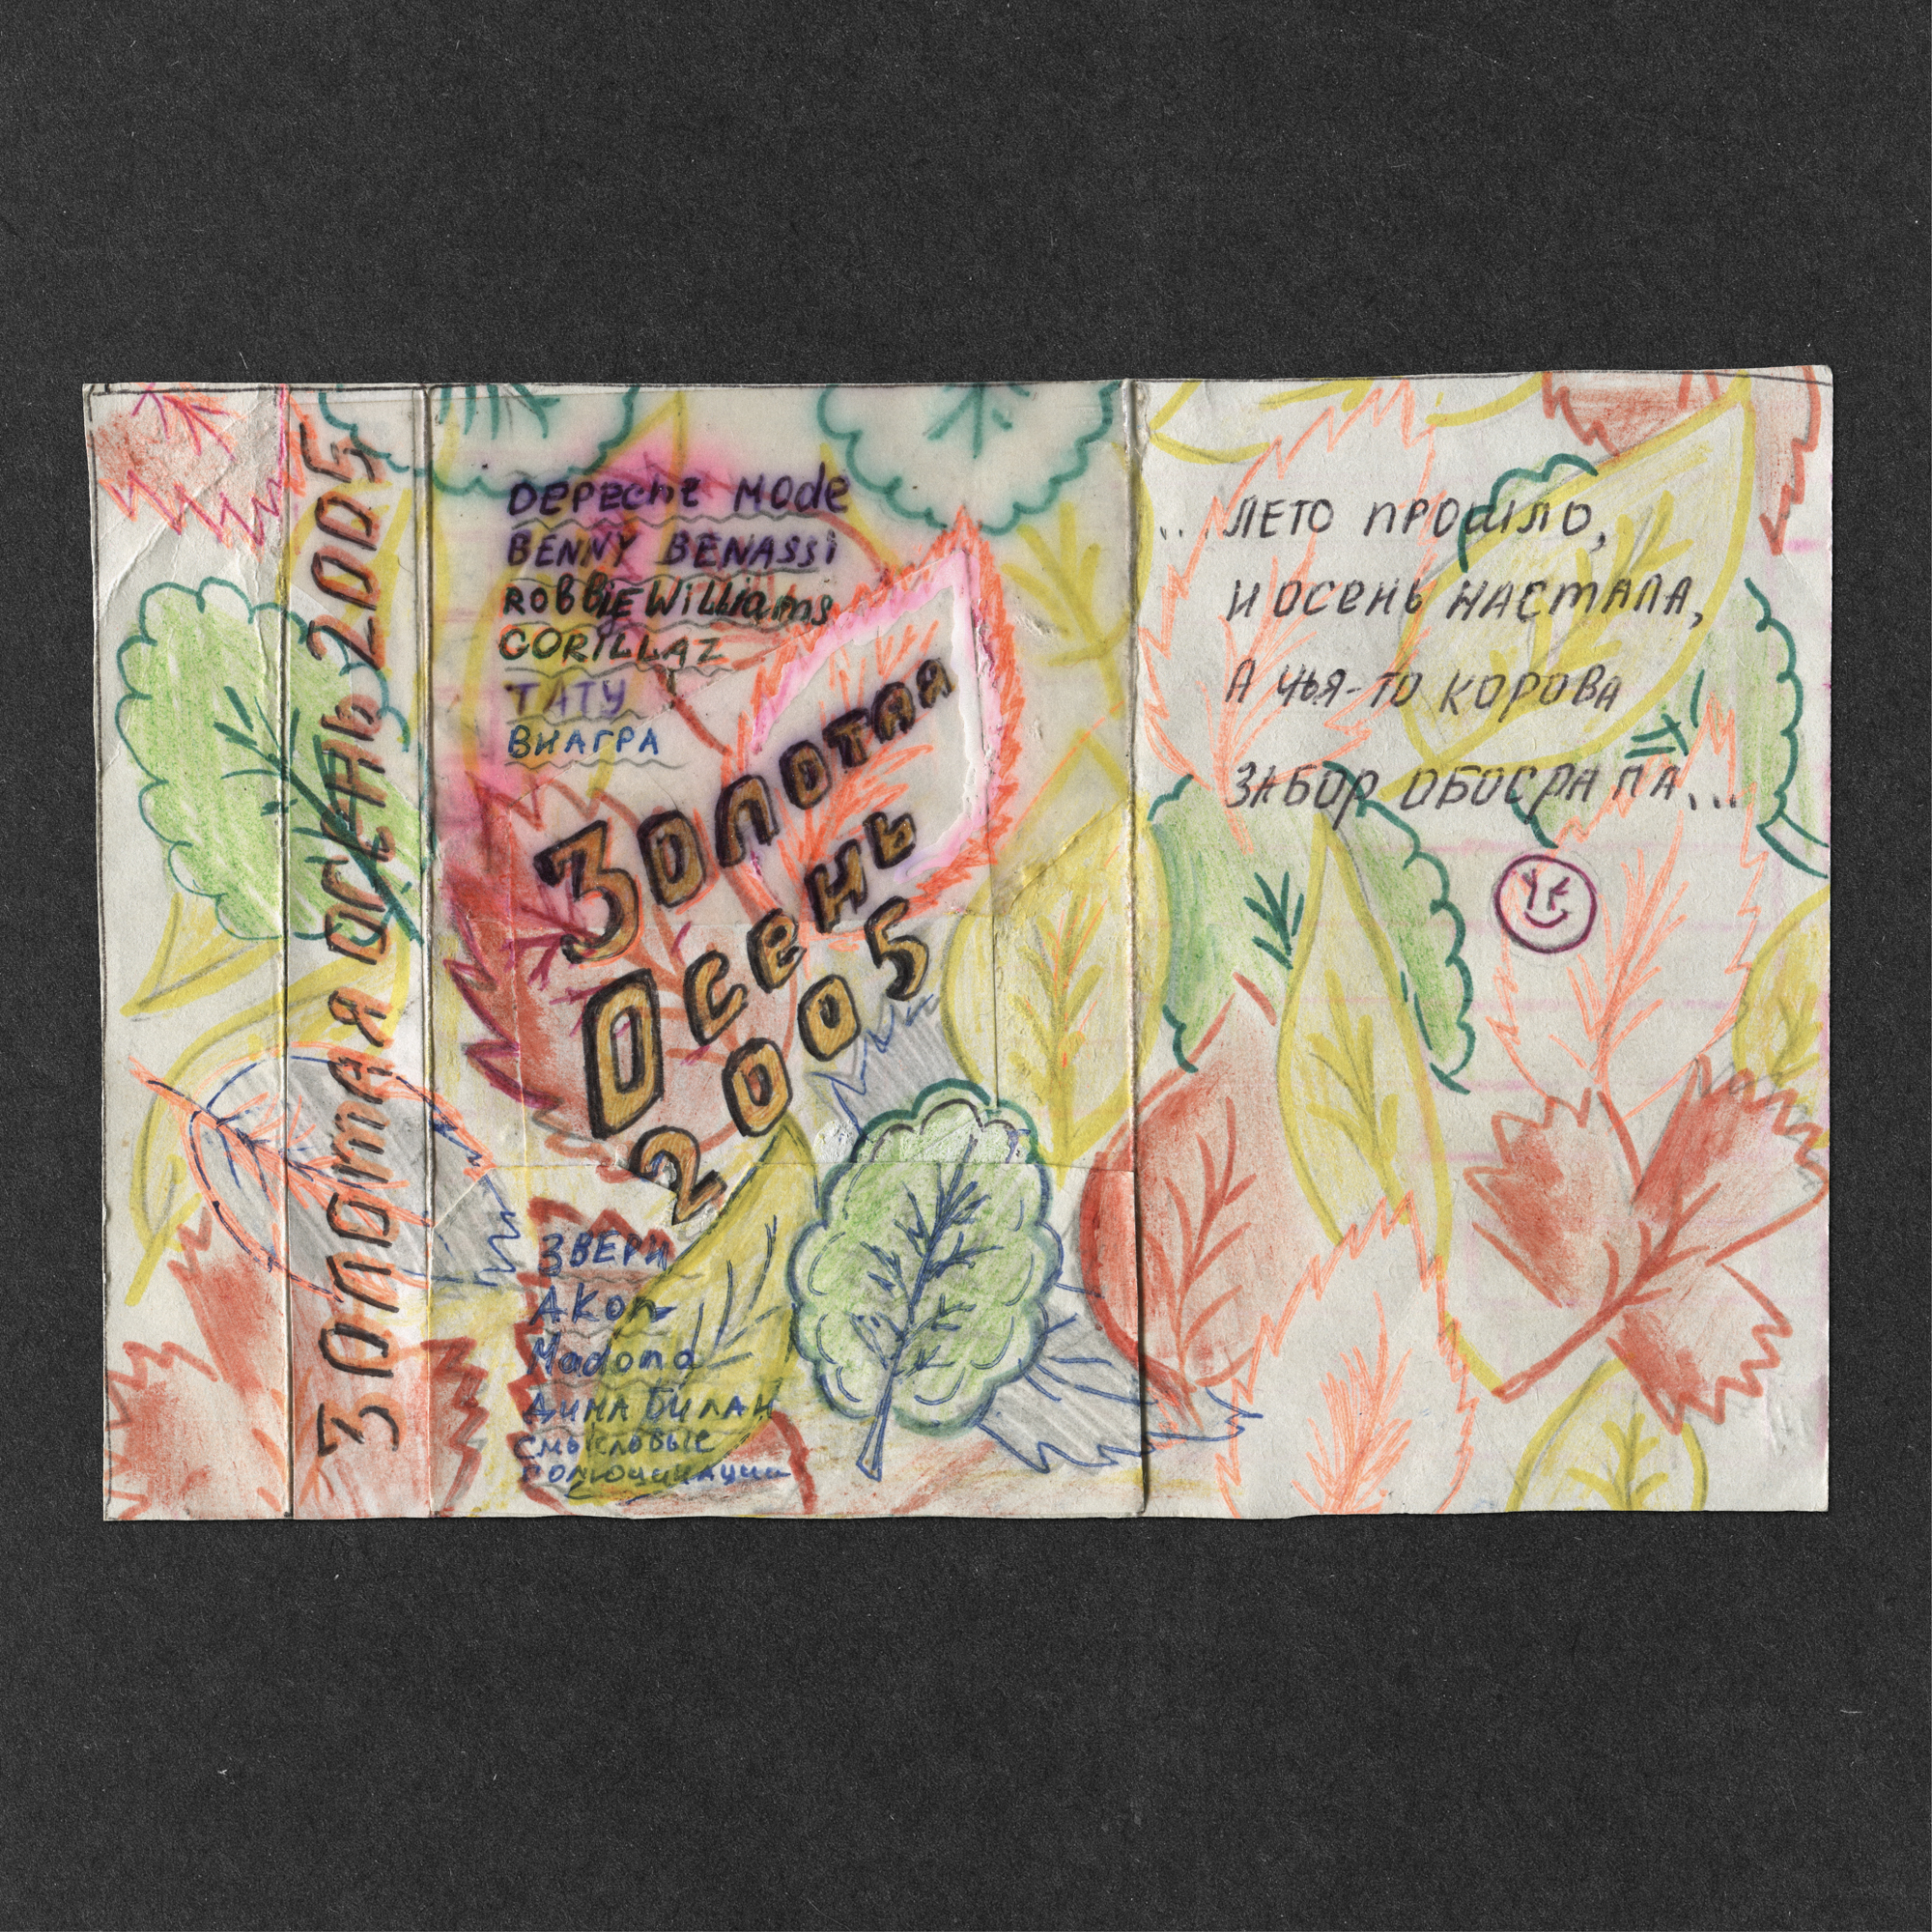 Золотая осень 2005
DEPECHE MODE
BENNY BENASSI
ROBBIE WILLIAMS
GORILLAZ
ТАТУ
ВИАГРА
Золотая
Осень
2005
ЗВЕРИ
AKON
Madona
ДИМА БИЛАН
смысловые
...ЛЕТО ПРОШЛО,
И ОСЕНЬ НАСТАЛА,
А ЧЬЯ-ТО КОРОВА
ЗАБОР ОБОСРАЛА...